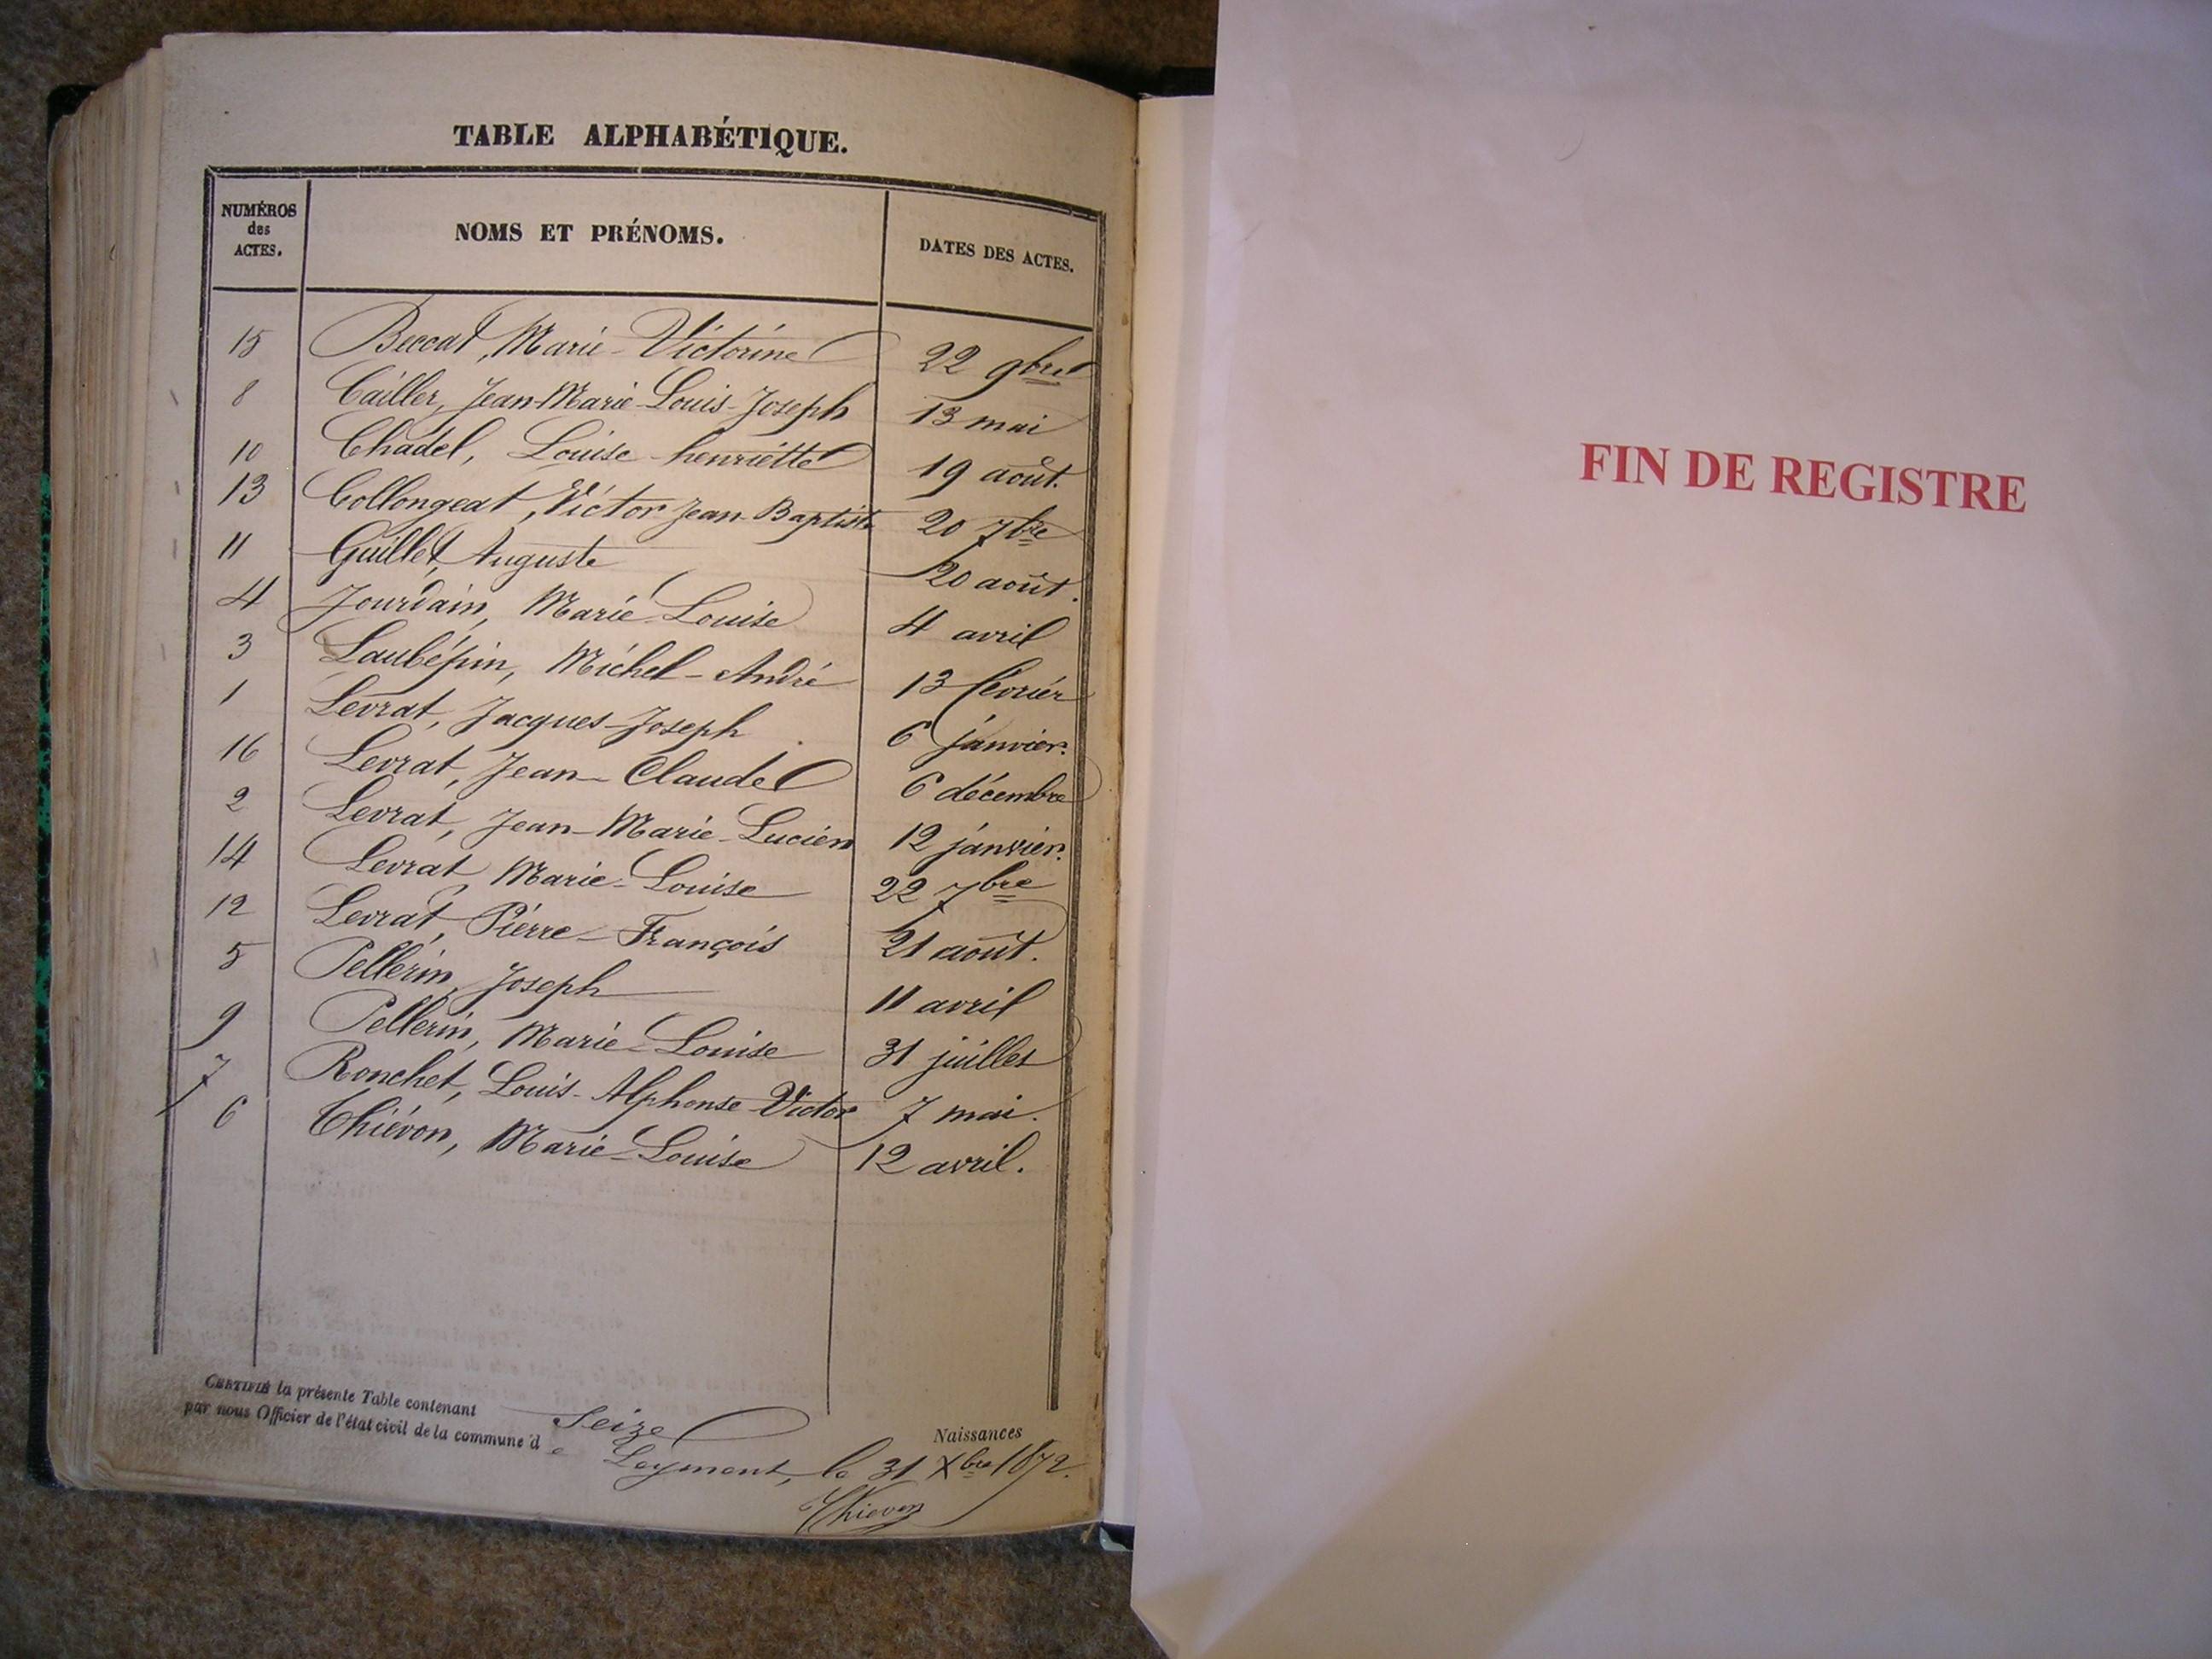 TABLE ALPHABÉTIQUE.
NUMÉROS
des
ACTES.
NOMS ET PRÉNOMS.
DATES DES ACTES.
15 Beccat, Marie-Victorine 22 9bre
8 Cailler, Jean-Marie-Louis-Joseph 13 mai
10 Chadel, Louise-henriette 19 août.
13 Collongeat, Victor Jean-Baptiste 20 7bre
11 Guillet, Auguste 20 août.
4 Jourdain, Marie Louise 4 avril
3 Laubépin, Michel-André 13 février
1 Levrat, Jacques-Joseph 6 janvier.
16 Levrat, Jean-Claude 6 décembre
2 Levrat, Jean-Marie-Lucien 12 janvier.
14 Levrat Marie-Louise 22 7bre
12 Levrat, Pierre-François 21 août.
5 Pellerin, Joseph 11 avril
9 Pellerin, Marie-Louise 31 juillet
7 Ronchet, Louis-Alphonse-Victor 7 mai.
6 Thiévon, Marie-Louise 12 avril.
CERTIFIÉ la présente Table contenant Seize Naissances
par nous Officier de l'état civil de la commune de Leyment, le 31 Xbre 1872.
Thievon
FIN DE REGISTRE